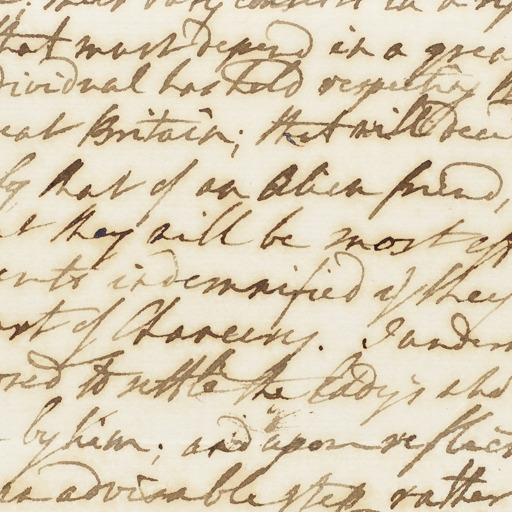 that must depend in a grea
dividual has held respecting
eat Britain; that will dece
by that of an Alien friend,
t they will be most eff
ents indemnified if they
urt of Chancery. I unders
osed to settle the lady's sha
by him; and upon reflect
an advisable step rather